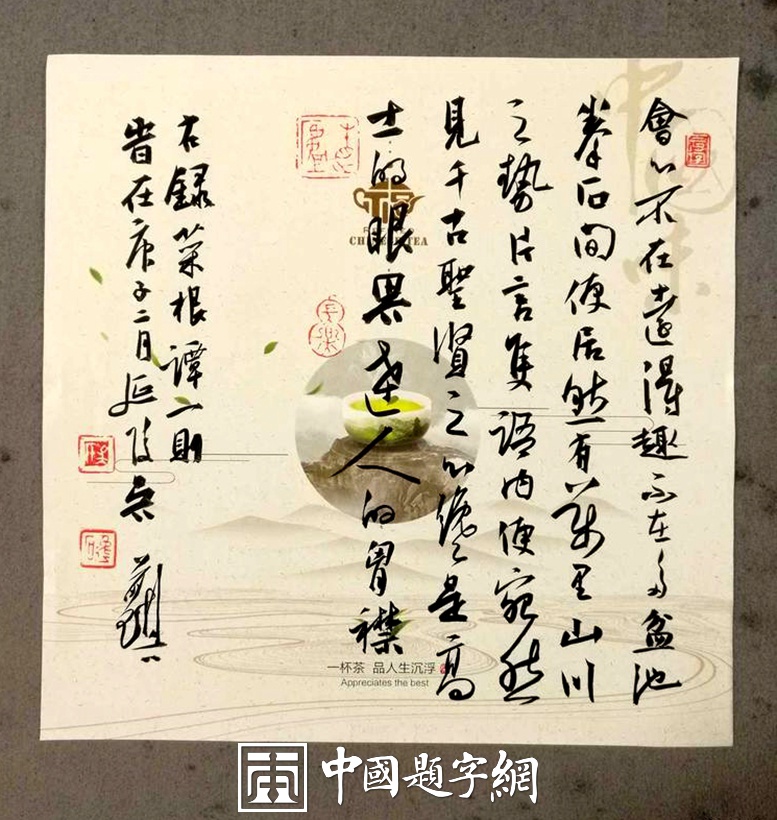 會心不在遠得趣不在多盆池
拳石間便居然有萬里山川
之勢片言隻語內便宛然
見千古聖賢之心纔是高
士的眼界達人的胷襟
右錄菜根譚一則
時在庚子二月延陵
中國味
CHINESE TEA
一杯茶 品人生沉浮
Appreciates the best
中國題字網